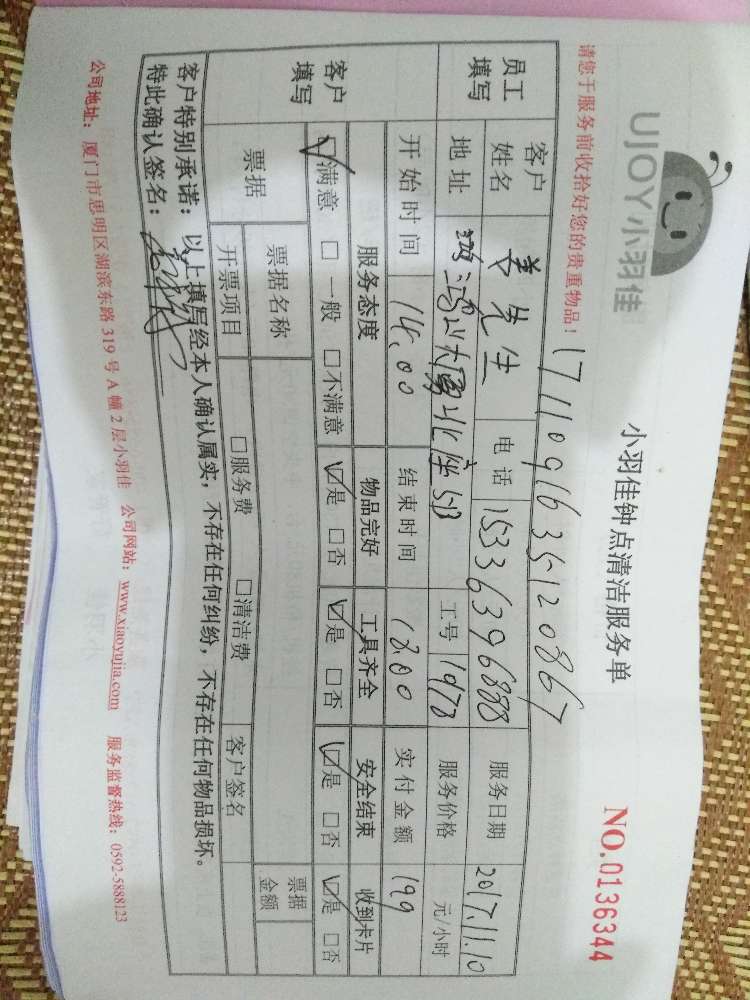 UJOY小羽佳
小羽佳钟点清洁服务单
NO.0136344
请您于服务前收拾好您的贵重物品！
1711091635120867
员工填写
客户姓名
先生
电话
15336396888
服务日期
2017.11.10
地址
513
工号
1978
服务价格
元/小时
开始时间
14.00
结束时间
18.00
实付金额
199
客户填写
服务态度
物品完好
工具齐全
安全结束
收到卡片
☑满意 □一般 □不满意
☑是 □否
☑是 □否
☑是 □否
☑是 □否
票据
票据名称
票据金额
开票项目
□服务费 □清洁费
客户签名
客户特别承诺：以上填写经本人确认属实，不存在任何纠纷，不存在任何物品损坏。
特此确认签名：
公司地址：厦门市思明区湖滨东路 319 号 A 幢 2 层小羽佳 公司网站：www.xiaoyujia.com 服务监督热线：0592-5888123